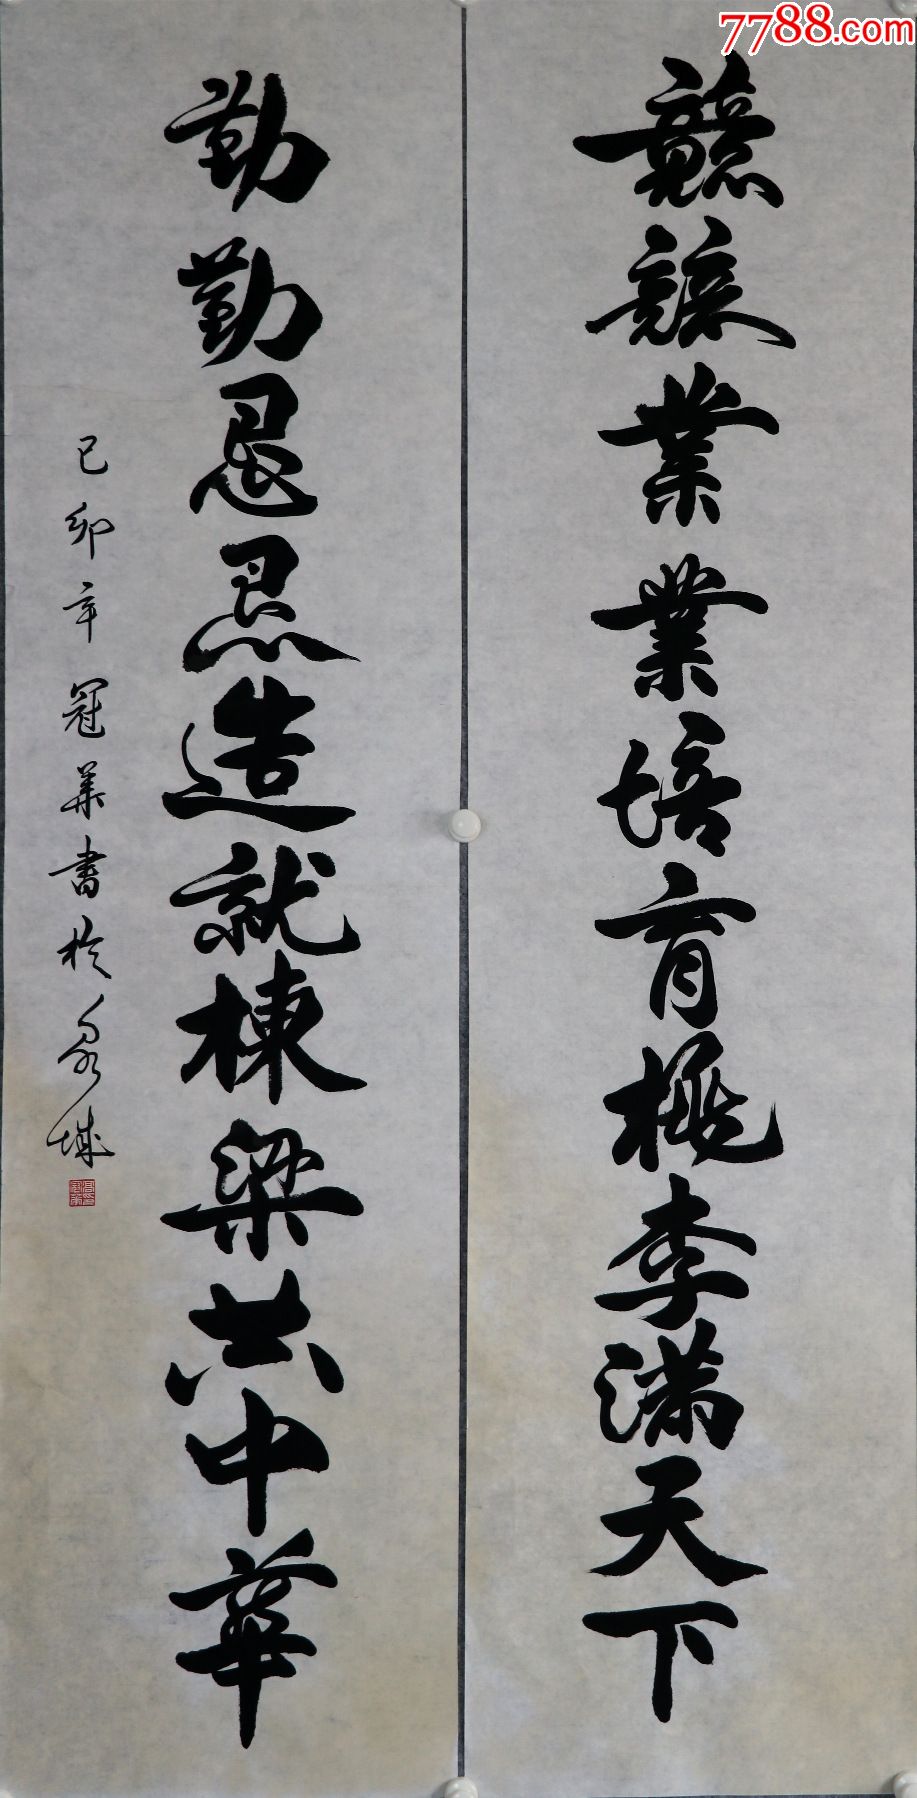 7788.com
兢兢業業培育桃李满天下
勤勤恳恳造就棟梁共中華
己卯年冠華書於泉城